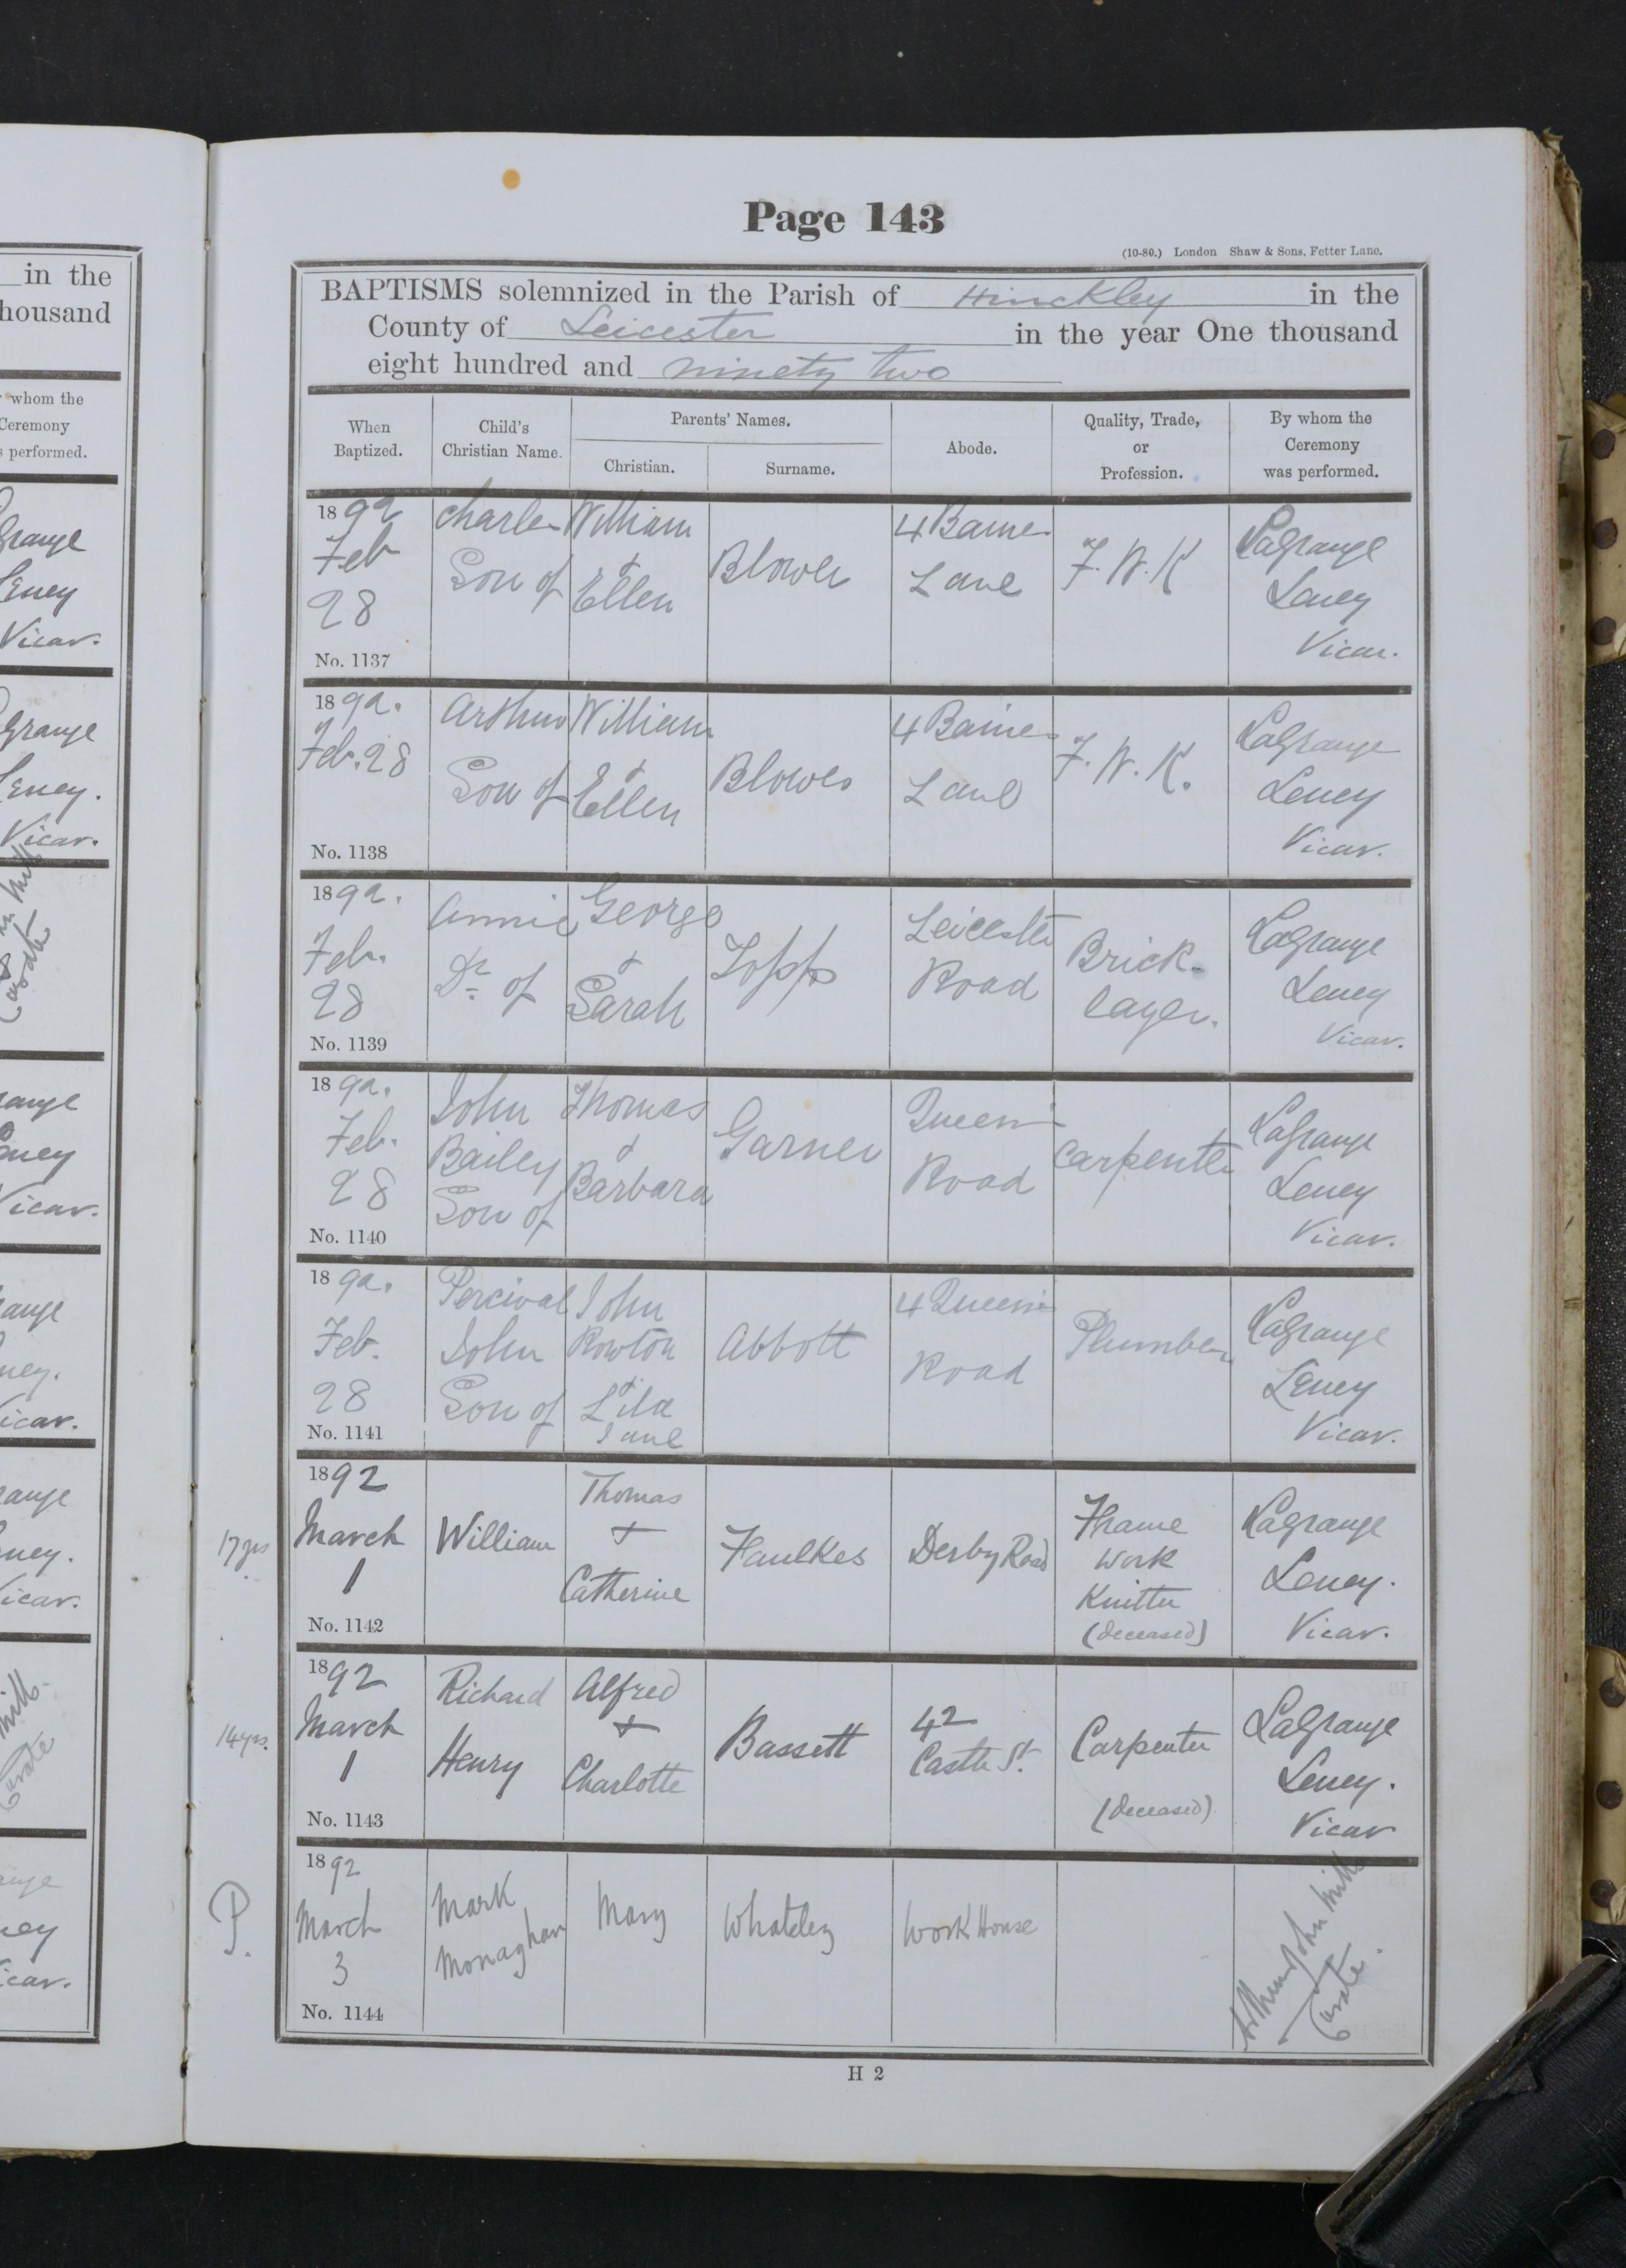 Page 143
(10-80.) London Shaw & Sons, Fetter Lane.
BAPTISMS solemnized in the Parish of Hinckley in the
County of Leicester in the year One thousand
eight hundred and ninety two
When Baptized.
Child's Christian Name.
Parents' Names.
Christian.
Surname.
Abode.
Quality, Trade, or Profession.
By whom the Ceremony was performed.
1892
Feb
28
No. 1137
Charles
Son of
William
+
Ellen
Blower
4 Baines
Lane
F.W.K
LaGrange
Leney
Vicar.
1892.
Feb. 28
No. 1138
Arthur
Son of
William
+
Ellen
Blower
4 Baines
Lane
F.W.K.
LaGrange
Leney
Vicar.
1892.
Feb.
28
No. 1139
Annie
Dr of
George
+
Sarah
Topp
Leicester
Road
Brick-
layer.
LaGrange
Leney
Vicar.
1892.
Feb.
28
No. 1140
John
Bailey
Son of
Thomas
+
Barbara
Garner
Queens
Road
Carpenter
LaGrange
Leney
Vicar.
1892.
Feb.
28
No. 1141
Percival
John
Son of
John
Rowton
+
Jane
Abbott
4 Queens
Road
Plumber
LaGrange
Leney
Vicar.
17 yrs
1892
March
1
No. 1142
William
Thomas
+
Catherine
Faulkes
Derby Road
Frame
Work
Knitter
(deceased)
LaGrange
Leney.
Vicar.
14 yrs.
1892
March
1
No. 1143
Richard
Henry
Alfred
+
Charlotte
Bassett
42
Castle St.
Carpenter
(deceased)
LaGrange
Leney.
Vicar
P.
1892
March
3
No. 1144
Mark
Monaghan
Mary
Whateley
Work House
Arthur John Mills
Curate.
H 2
in the
housand
whom the
Ceremony
s performed.